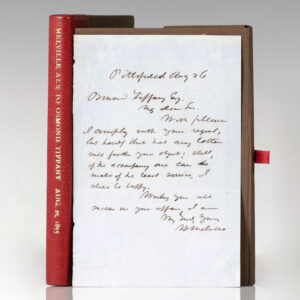 MELVILLE A.L.S. TO OSMOND TIFFANY AUG. 25, 1855
Pittsfield Aug 26
Osmond Tiffany Esq.
My dear Sir.
With pleasure
I comply with your request,
but hardly that any letter
will further your object; still,
if the accompanying one can be
made of the least service, I
shall be happy.
Wishing you all
success in your affair, I am
Very truly yours
H Melville